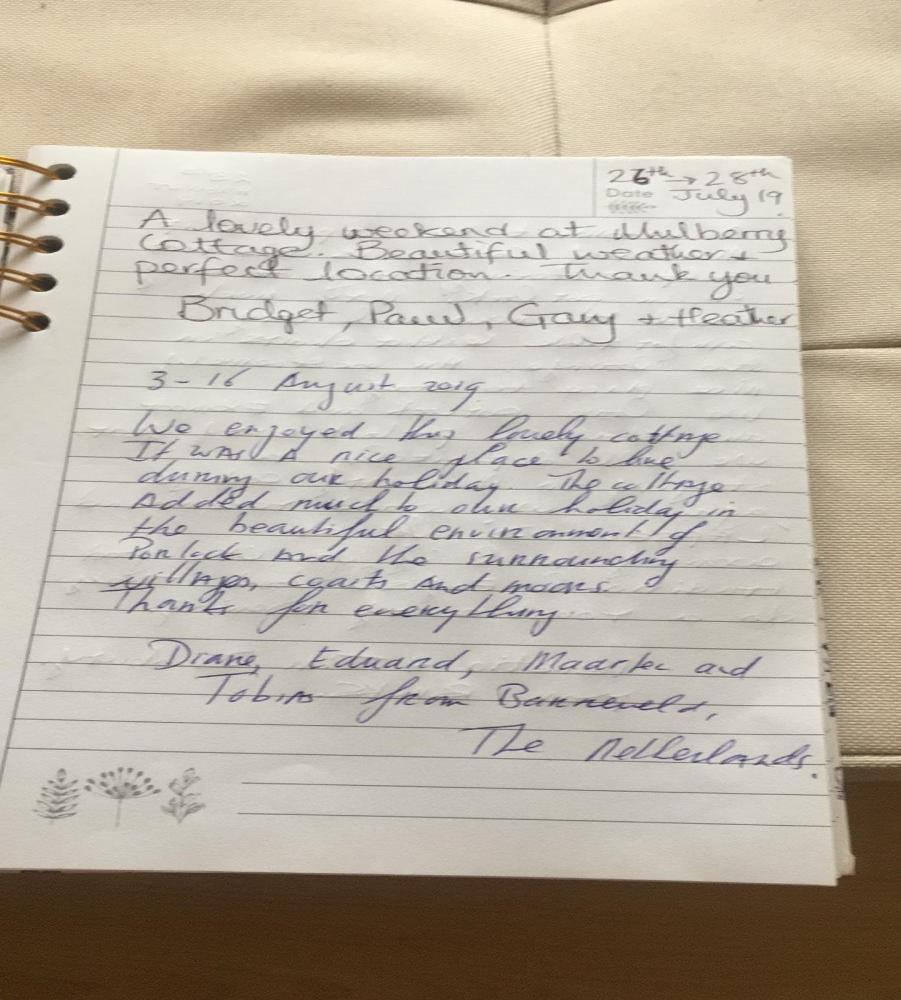 26th → 28th
Date July 19
A lovely weekend at Mulberry
Cottage. Beautiful weather +
perfect location. Thank you
Bridget, Paul, Gary + Heather
3 - 16 August 2019
We enjoyed this lovely cottage
It was A nice place to live
during our holiday. The cottage
Added much to our holiday in
the beautiful environment of
Porlock And the surrounding
villages, coasts And moors.
Thanks for everything.
Diane, Eduard, Maartje and
Tobias from Barneveld,
The Netherlands.